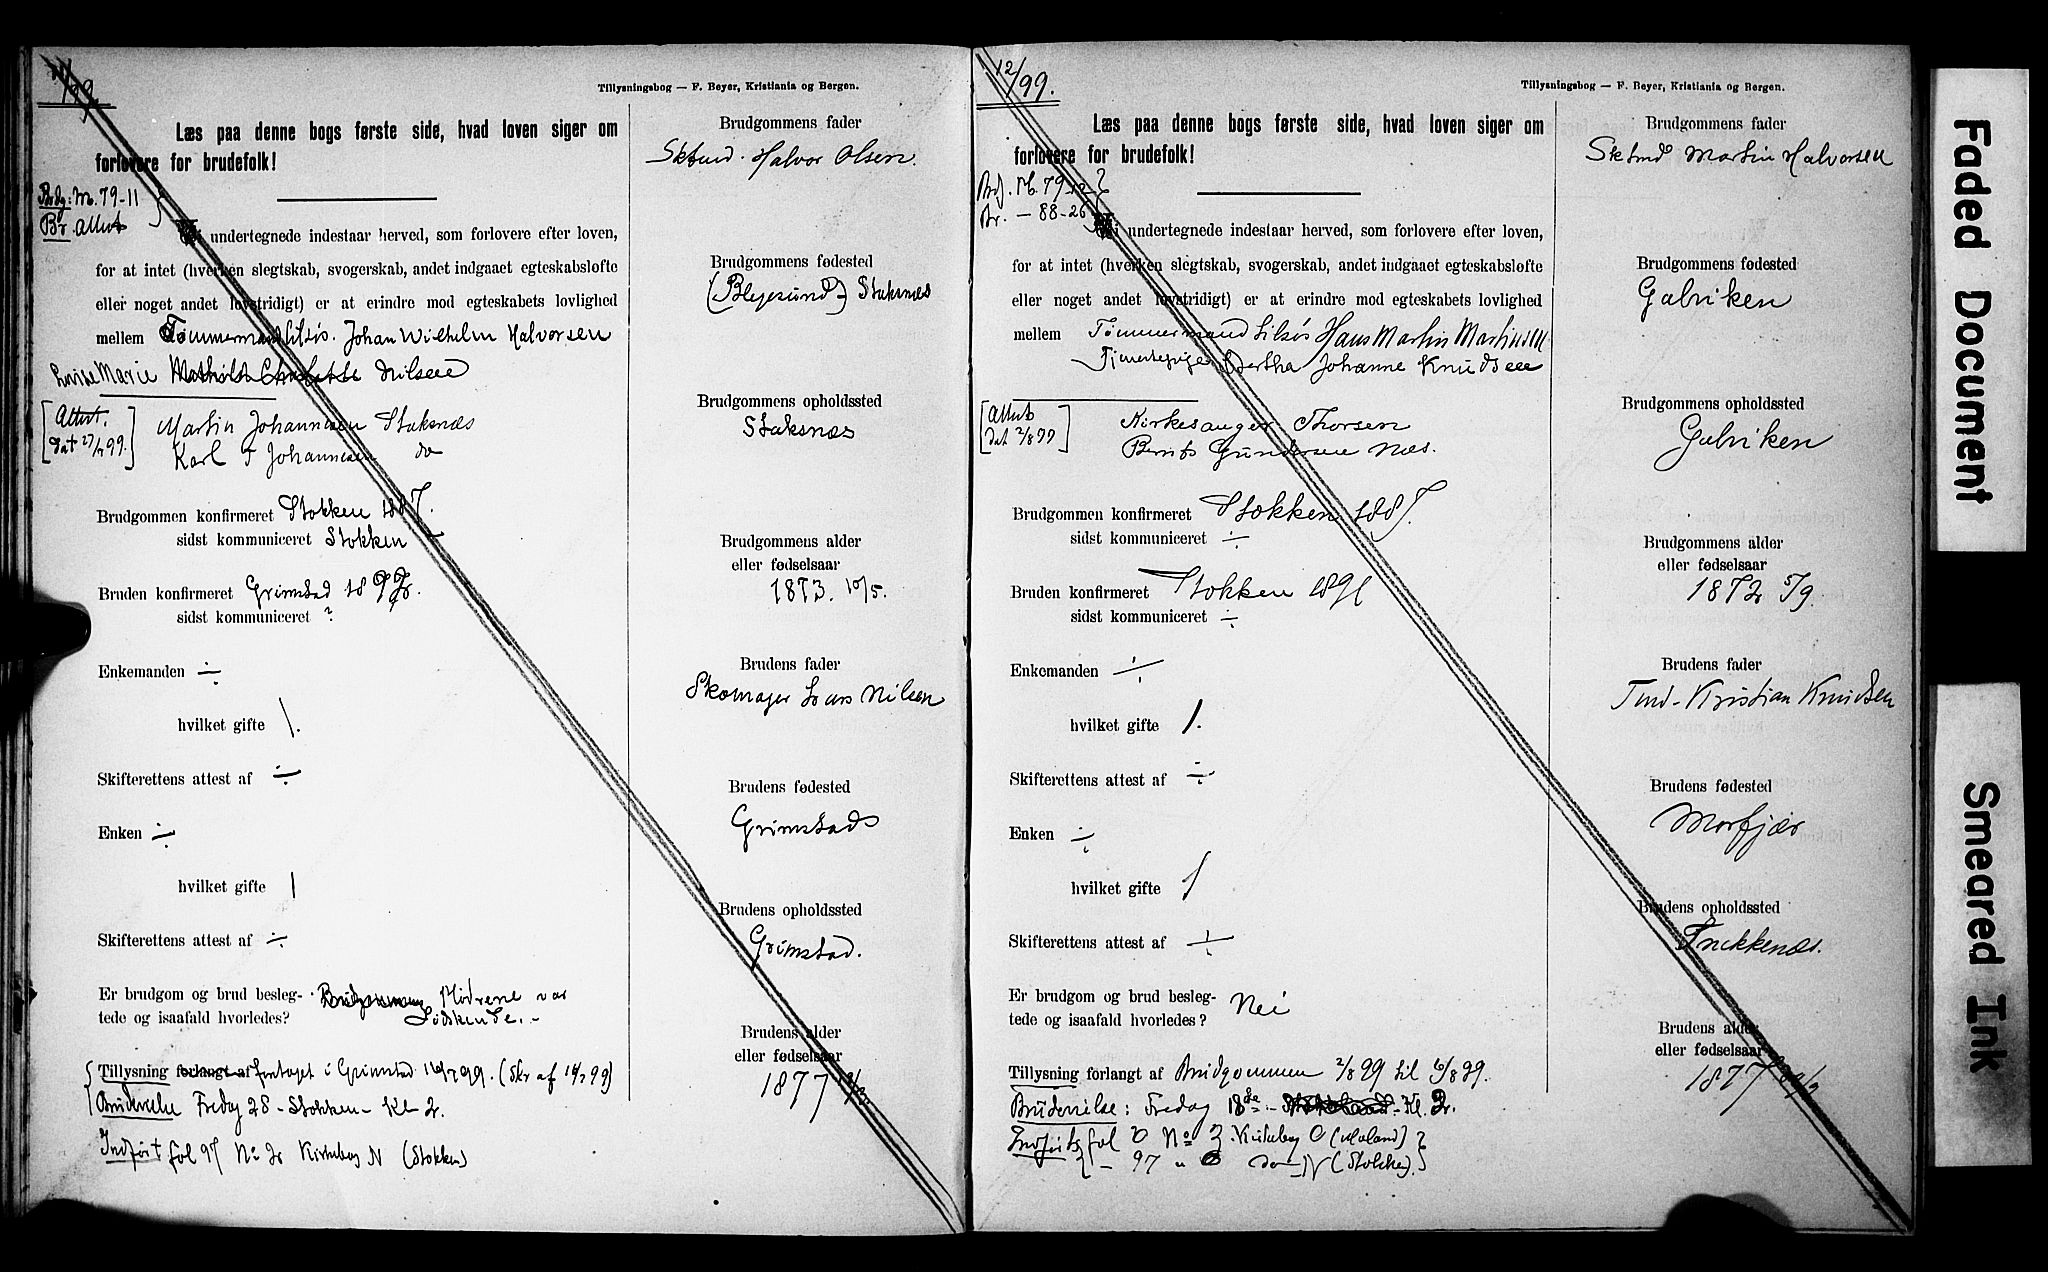 Tillysningsbog — F. Beyer, Kristiania og Bergen.
Læs paa denne bogs første side, hvad loven siger om
forlovere for brudefolk!
Brdg: M. 79-11
Br. attest
Vi undertegnede indestaar herved, som forlovere efter loven,
for at intet (hverken slegtskab, svogerskab, andet indgaaet egteskabsløfte
eller noget andet lovstridigt) er at erindre mod egteskabets lovlighed
mellem Tømmermand tilsøs. Johan Wilhelm Halvorsen
Lovise Marie Mathilde Charlotte Nilsen
[Attest. dat 27/7 99.]
Martin Johannesen Staksnæs
Karl F Johannesen do
Brudgommen konfirmeret Stokken 1887.
sidst kommuniceret Stokken
Bruden konfirmeret Grimstad 1892.
sidst kommuniceret ?
Enkemanden ÷
hvilket gifte 1.
Skifterettens attest af ÷
Enken ÷
hvilket gifte 1
Skifterettens attest af ÷
Er brudgom og brud besleg- Mødrene var
tede og isaafald hvorledes? Sødskende.-
Tillysning forlangt af foretaget i Grimstad 16/7 99. (Skr af 19/7 99)
Brudevielse Fredag 28 - Stokken - Kl 2.
Indført fol 97 No 2 Kirkebog N (Stokken)
Brudgommens fader
Skbmd. Halvor Olsen.
Brudgommens fødested
(Blejesund) Staksnæs
Brudgommens opholdssted
Staksnæs
Brudgommens alder
eller fødselsaar
1873. 10/5.
Brudens fader
Skomager Lars Nilsen
Brudens fødested
Grimstad
Brudens opholdssted
Grimstad.
Brudens alder
eller fødselsaar
1877
12/99.
Tillysningsbog — F. Beyer, Kristiania og Bergen.
Læs paa denne bogs første side, hvad loven siger om
forlovere for brudefolk!
Brg. M. 79-12
Br. — 88-26
Vi undertegnede indestaar herved, som forlovere efter loven,
for at intet (hverken slegtskab, svogerskab, andet indgaaet egteskabsløfte
eller noget andet lovstridigt) er at erindre mod egteskabets lovlighed
mellem Tømmermand tilsøs Hans Martin Martinsen
Tjenestepige Bertha Johanne Knudsen
[Attest dat 2/8 99]
Kirkesanger Thorsen
Bernts Gundersen Næs.
Brudgommen konfirmeret Stokken 1887.
sidst kommuniceret ÷
Bruden konfirmeret Stokken 1891
sidst kommuniceret ÷
Enkemanden ÷
hvilket gifte 1.
Skifterettens attest af ÷
Enken ÷
hvilket gifte 1
Skifterettens attest af ÷
Er brudgom og brud besleg-
tede og isaafald hvorledes? Nei
Tillysning forlangt af Brudgommen 2/8 99 til 6/8 99.
Brudevielse: Fredag 18de - Kl. 2.
Indført fol No 3 Kirkebog C (Moland)
— 97 " do — N (Stokken).
Brudgommens fader
Skbmd Martin Halvorsen
Brudgommens fødested
Galviken
Brudgommens opholdssted
Galviken
Brudgommens alder
eller fødselsaar
1872 5/9.
Brudens fader
Tmd. Kristian Knudsen
Brudens fødested
Morfjær
Brudens opholdssted
Snekkenæs.
Brudens alder
eller fødselsaar
1877
Faded Document
Smeared Ink